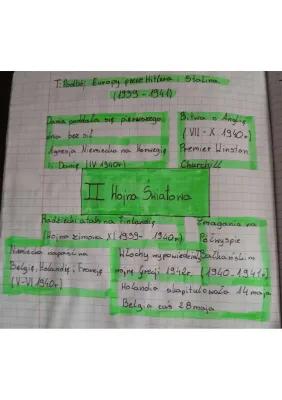 T: Podbój Europy przez Hitlera i Stalina
(1939 - 1941)
Dania poddała się pierwszego
dnia bez sił
Agresja Niemiecka na Norwegię
i Danię (IV 1940r)
Bitwa o Anglię
(VII - X. 1940r.)
Premier Winston
Churchill
II Wojna Światowa
Radziecki atak na Finlandię
(Wojna zimowa XI 1939- 1940r)
Zmagania na
Półwyspie
Bałkańskim
(1940 - 1941r.)
Niemiecka napaść na
Belgię, Holandię, Francję
(V-VI 1940r)
Włochy wypowiedziały
wojnę Grecji 1942r.
Holandia skapitulowała 14 maja
Belgia zaś 28 maja